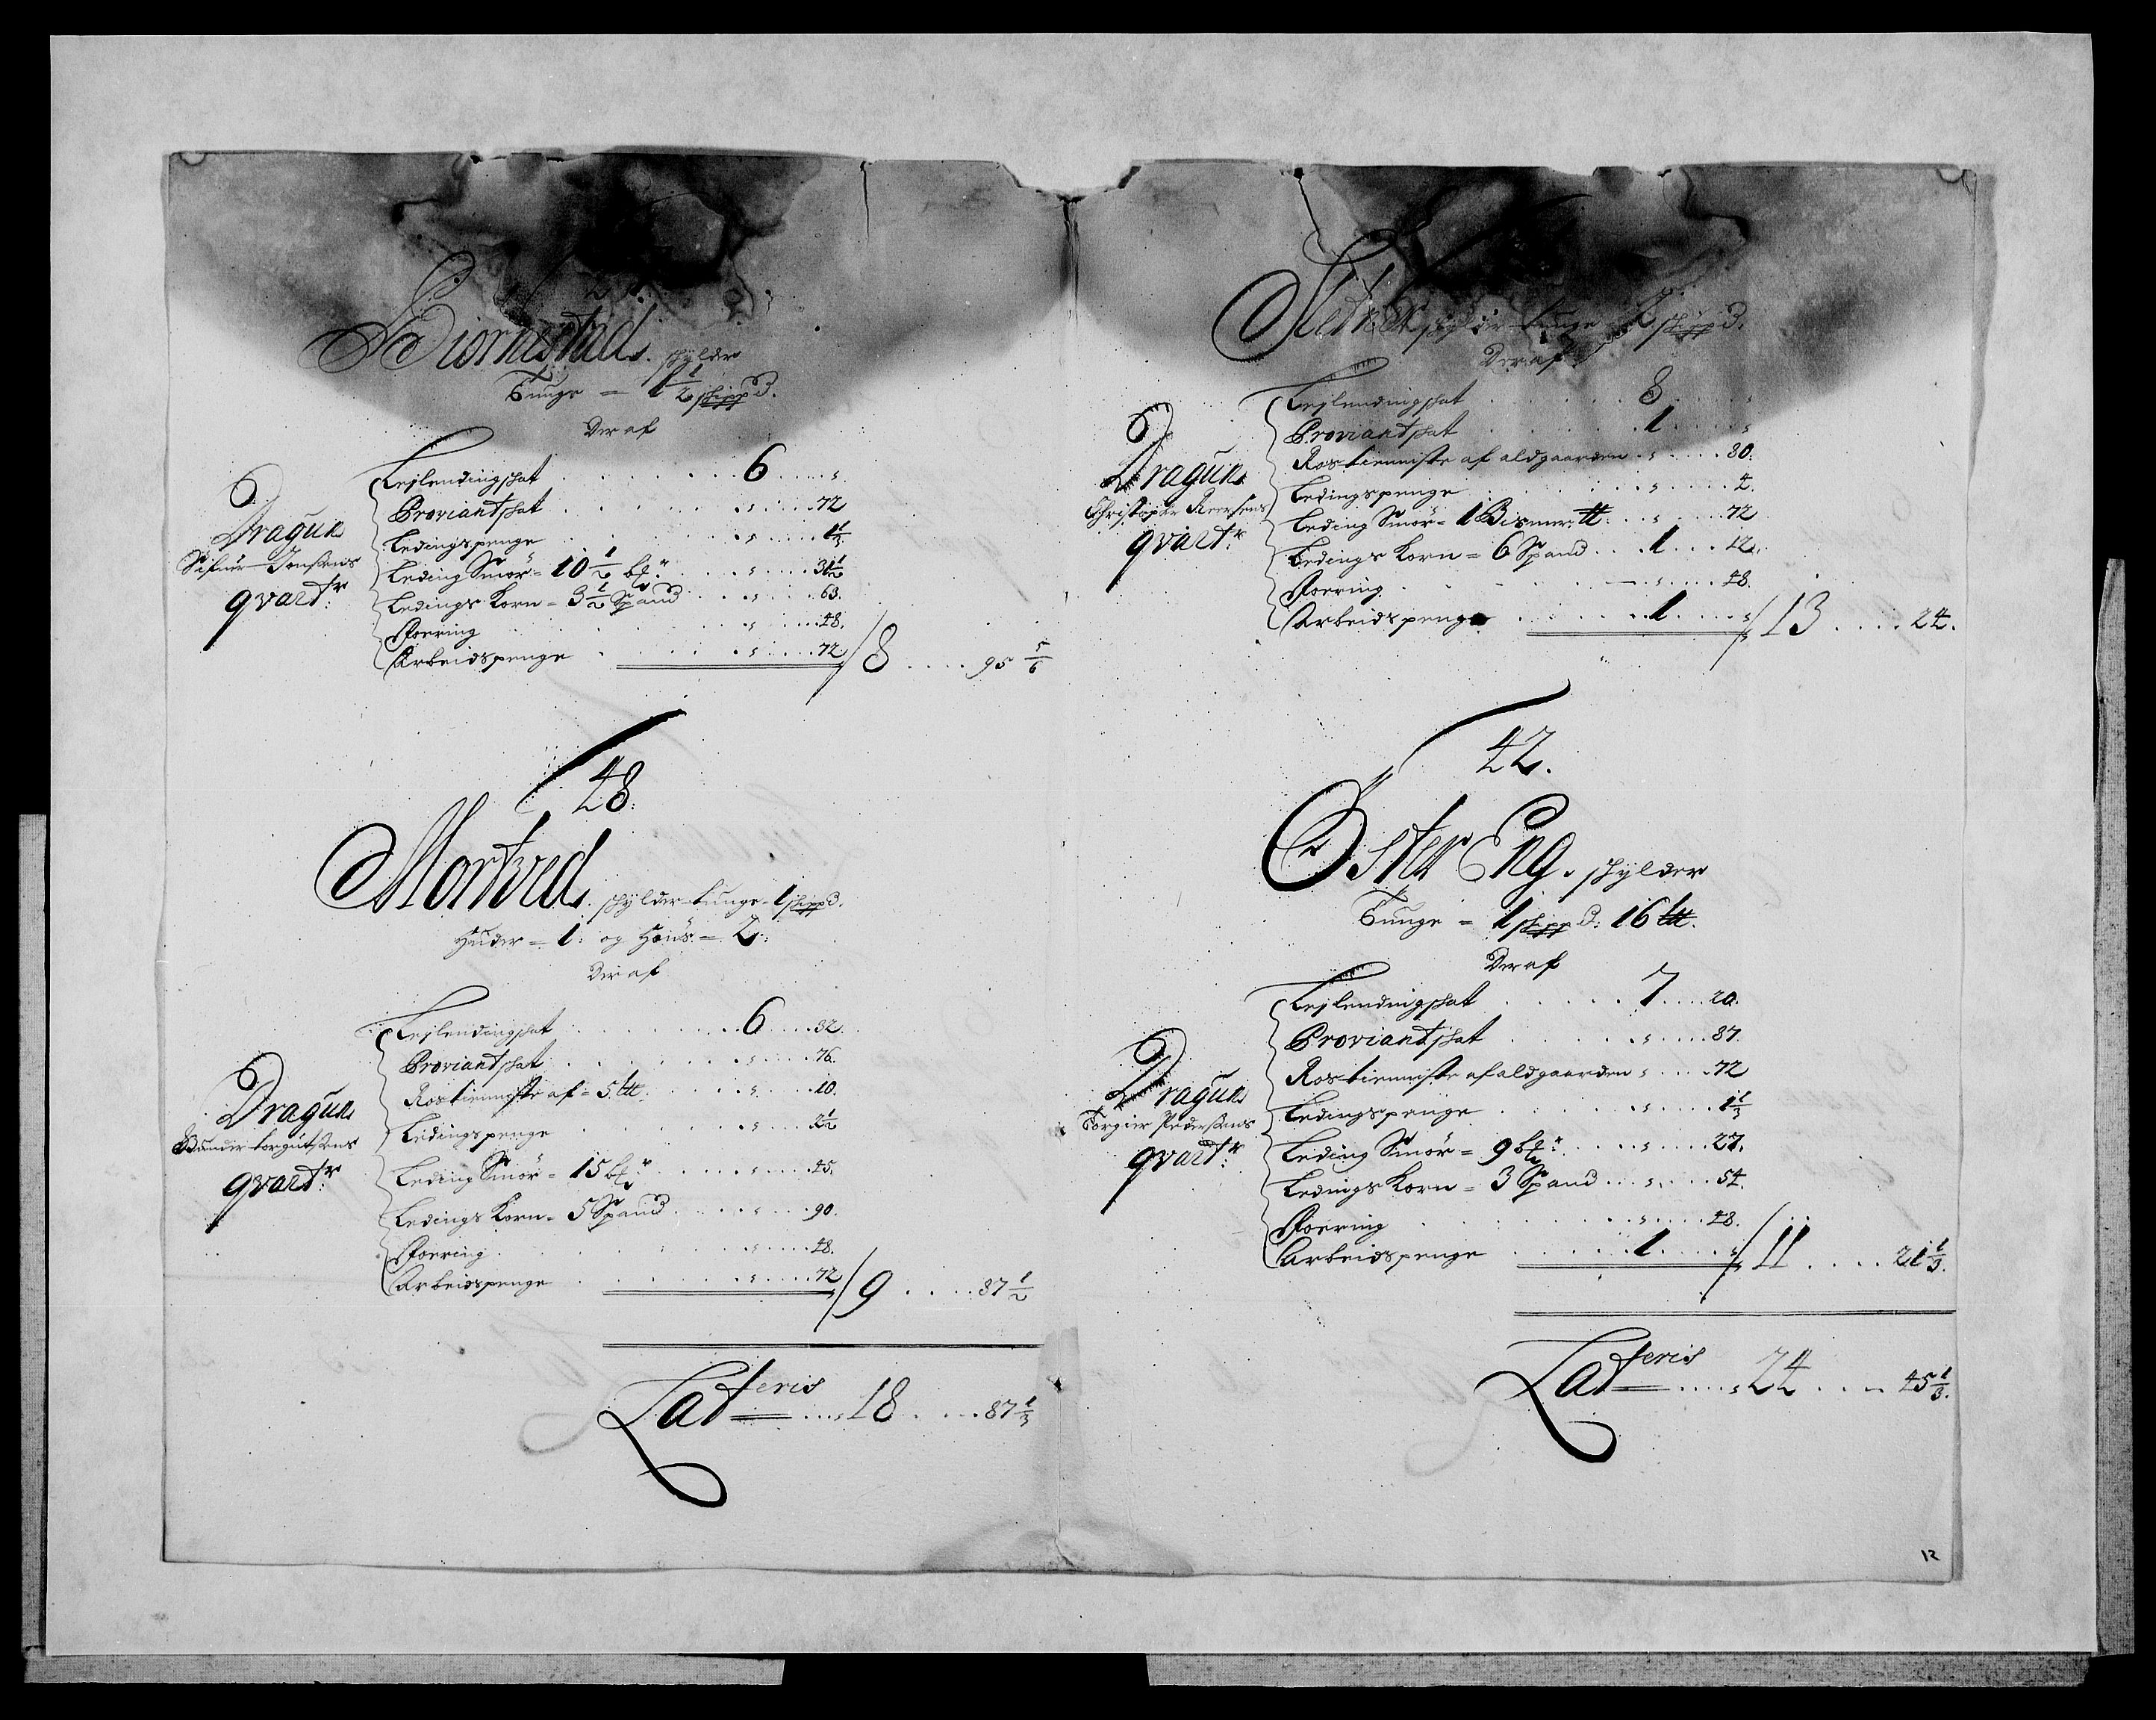 Biornestad. schylder
Tunge = 1 1/2 schippd.
Der af
Dragun
Sifuer Jensens
qvartr:
Leylendingschat . . . 6 . . . "
Proviantschat . . . " . . . 72
Ledingspenge . . . " . . . 1 1/3
Leding Smör = 10 1/2 . . . " . . . 31 1/2
Ledings Korn = 3 1/2 Spand . . . " . . . 63.
Foering . . . " . . . 48.
Arbeidspenge . . . " . . . 72 / 8 . . . . 95 5/6
48.
Mortved. schylder tunge = 1 schippd.
Huder = 1: og Höns = 2.
Der af
Dragun
Gunder torgutsens
qvartr:
Leylendingschat . . . 6 . . . 32.
Proviantschat . . . " . . . 76.
Rostienniste af = 5. . . . " . . . 20.
Ledingspenge . . . " . . . 2 1/2
Leding Smör = 15 . . . " . . . 45.
Ledings Korn = 5 Spand . . . " . . . 90.
Foering . . . " . . . 48.
Arbeidspenge . . . " . . . 72 / 9 . . . . 87 1/2
Lateris . . . 18 . . . 87 1/3
schylder tunge 2 schippd.
Der af
Dragun
Christopher
qvartr:
Leylendingschat . . . 8 . . . "
Proviantschat . . . 1 . . . "
Rostienniste af aldgaarden . . . " . . . 80.
Ledingspenge . . . " . . . 4.
Leding Smör = 1 Bismer . . . " . . . 72
Ledings Korn = 6 Spand . . . 1 . . . 12.
Foering . . . " . . . 48.
Arbeidspenge . . . 1 . . . " / 13 . . . . 24.
42.
Öster Eng. schylder
Tunge = 1 schippd: 16
Der af
Dragun
Torgier Pedersens
qvartr:
Leylendingschat . . . 7 . . . 20.
Proviantschat . . . " . . . 87.
Rostienniste af aldgaarden " . . . 72
Ledingspenge . . . " . . . 1 1/3
Leding Smör = 9 . . . " . . . 27.
Ledings Korn = 3 Spand . . . " . . . 54.
Foering . . . " . . . 48.
Arbeidspenge . . . 1 . . . " / 11 . . . . 21 1/3.
Lateris . . . 24 . . . 45 1/3.
12